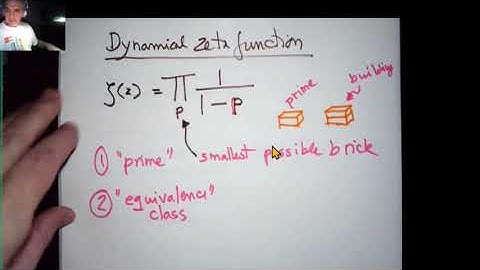 Dynamial zeta function
ζ(z) = ∏ 1
p 1-p
prime
building
① "prime" smallest possible brick
② "equivalence"
class